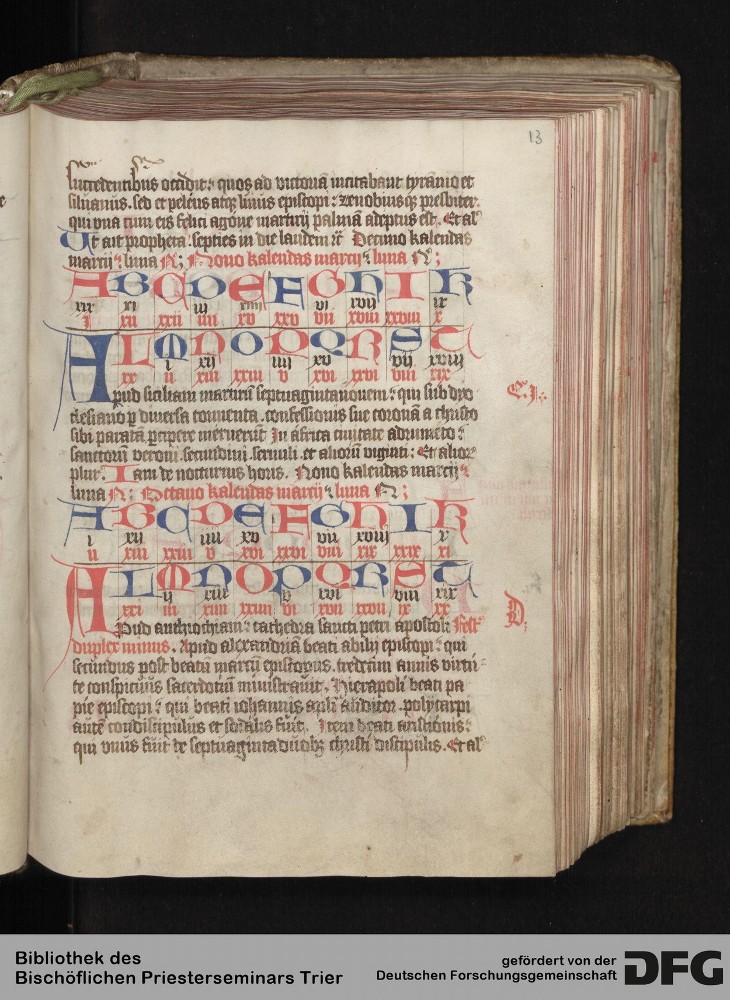 13
succedentibus occidit: quos ad victoria incitabant tyranio et
siluanus. sed et peleus atq; linius episcopi: zenobiusq; presbiter.
qui vna cum eis felici agone martirij palmā adeptus est. Et al'
Ut ait propheta septies in die laudem Decimo kalendas
marcij: luna N; Nono kalendas marcij: luna N;
A B C D E F G H I K
xix xi iij xiiij vi xvij ix
i xij xxij iiij xv xxv vij xviij xxviij x
A L M N O P Q R S T
i xij iiij xv vij xviij
xx ij xiij xxiij v xvi xxvi viij xix
Apud siciliam martirū septuagintanouem: qui sub dyo
clesiano ꝑ diuersa tormenta. confessionis sue coronā a christo
sibi paratā ꝑcipere meruerūt In africa ciuitate adrumeto:
sanctorū veroni. secundini. seruili. et aliorū viginti: Et alior
plur. Iam de nocturnis horis. Nono kalendas marcij:
luna N: Octauo kalendas marcij: luna N;
A B C D E F G H I K
i xij iiij xv vij xviij
ij xiij xxiij v xvi xxvi viij xix xxix xi
A L M N O P Q R S T
ij xiij v xvi viij xix
xxi iij xiiij xxiiij vi xvij xxvij ix xx
Apud anthiochiam: cathedra sancti petri apostoli Fest'
duplex minus. Apud alexandriā beati abilij episcopi: qui
secundus post beatū marcū episcopus. tredecim annis virtu=
te conspicuus sacerdotiū ministrauit. Hierapoli beati pa
pie episcopi: qui beati iohannis apl'i auditor. polycarpi
autē condiscipulus et sodalis fuit. Item beati aristionis:
qui vnus fuit de septuagintaduobꝫ christi discipulis. Et al'
C.
D.
Bibliothek des
Bischöflichen Priesterseminars Trier
gefördert von der
Deutschen Forschungsgemeinschaft
DFG